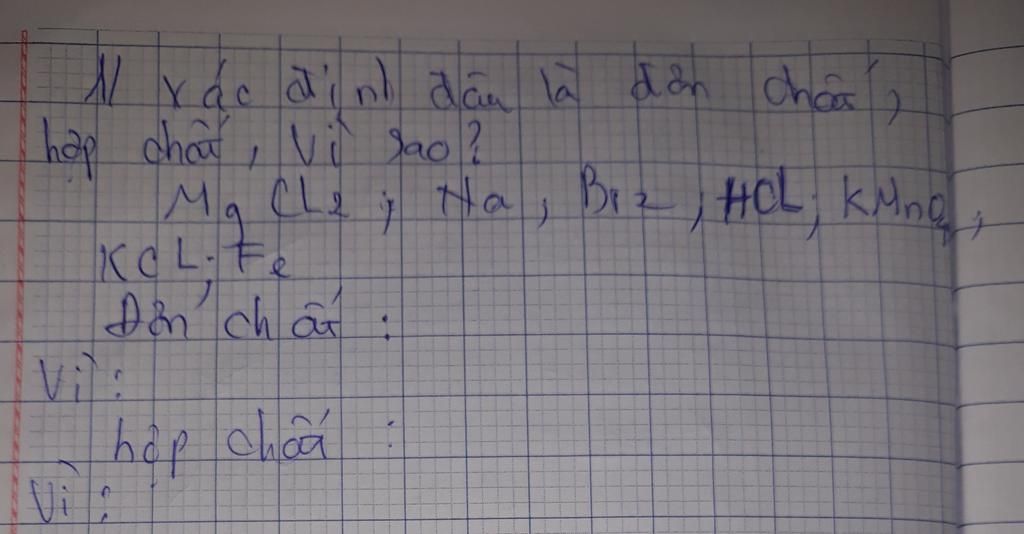 1/ xác định đâu là đơn chất,
hợp chất, Vì sao?
MgCL2; Na, Br2, HCL; KMnO4;
KCL; Fe
Đơn chất :
Vì :
hợp chất :
Vì :